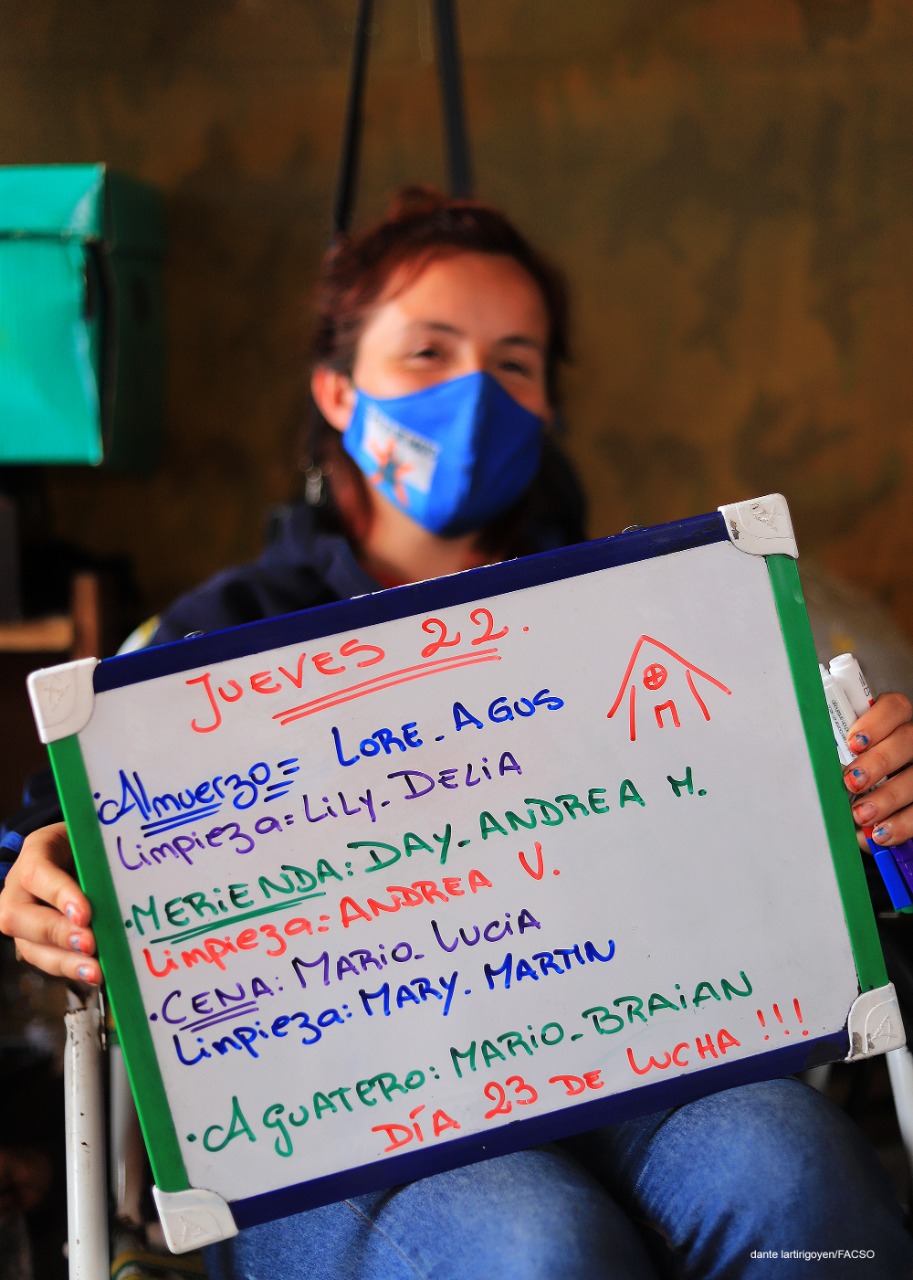 JUEVES 22.
·Almuerzo= LORE - AGUS
Limpieza= LiLy - DELiA
·MERiENDA: DAY - ANDREA M.
Limpieza= ANDREA V.
·CENA: MARiO - LUCiA
Limpieza: MARY - MARTIN
·AGUATERO: MARiO - BRAiAN
DÍA 23 DE LUCHA !!!
dante lartirigoyen/FACSO